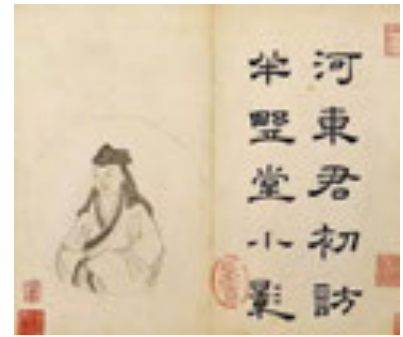 河東君初訪
半野堂小景